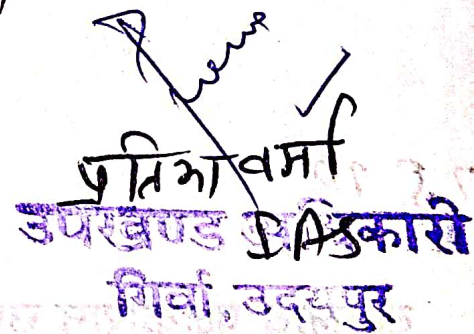 प्रतिभा वर्मा
IAS
उपखण्ड अधिकारी
गिर्वा, उदयपुर